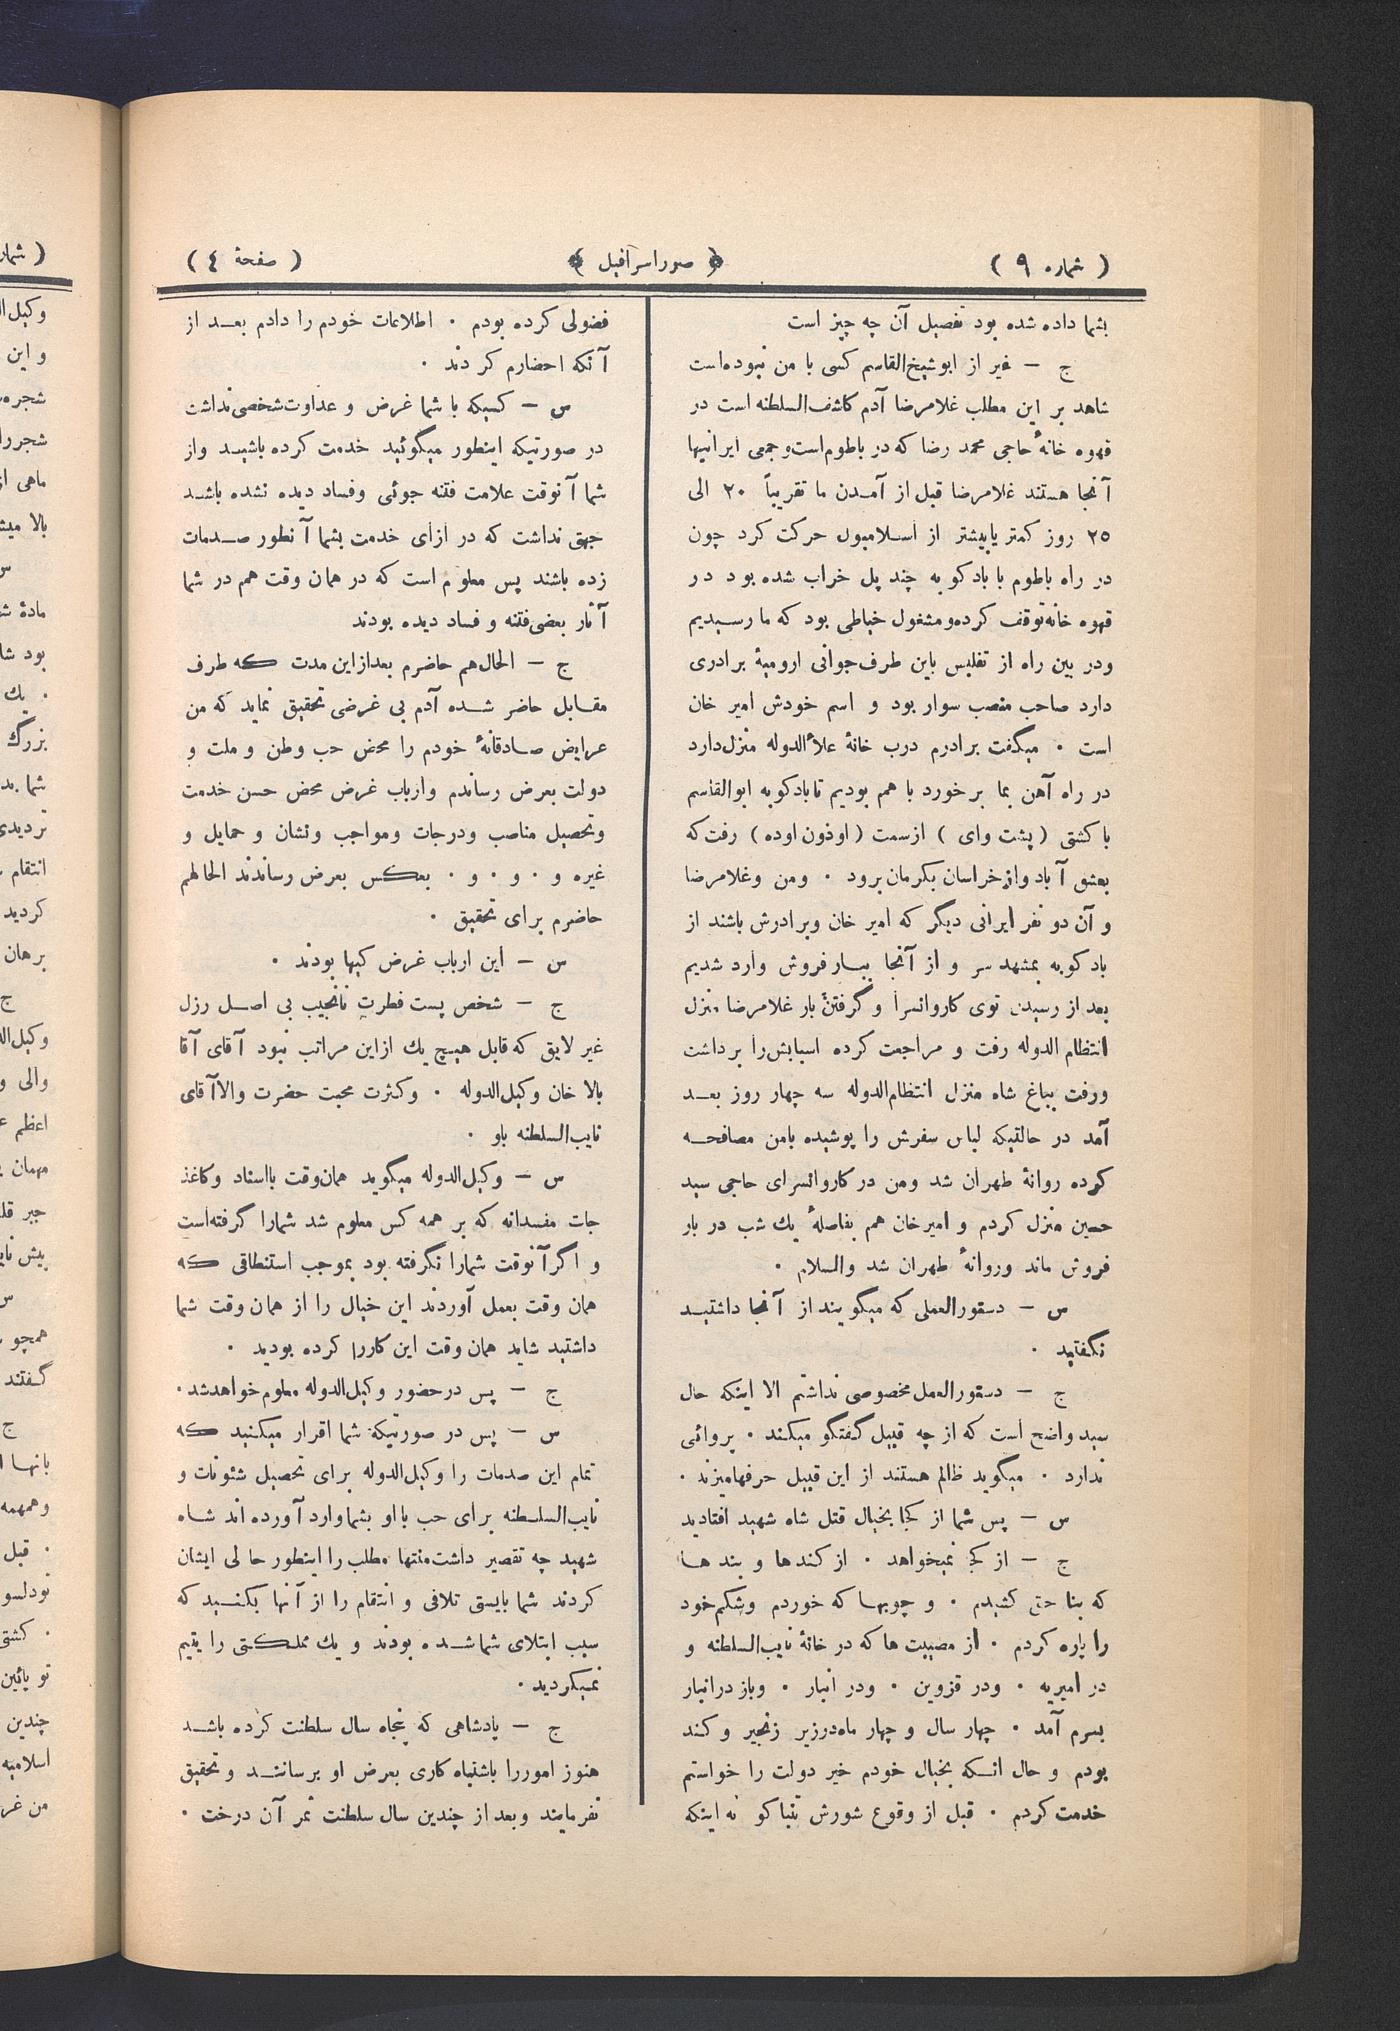 ( شماره ۹ )
﴿ صوراسرافیل ﴾
( صفحهٔ ٤ )
بشما داده شده بود تفصیل آن چه چیز است
ج — غیر از ابوشیخ‌القاسم کسی با من نبوده‌است
شاهد بر این مطلب غلامرضا آدم کاشف‌السلطنه است در
قهوه خانهٔ حاجی محمد رضا که در باطوم‌است‌وجمعی ایرانیها
آنجا هستند غلامرضا قبل از آمدن ما تقریباً ۲۰ الی
۲۵ روز کمتر یابیشتر از اسلامبول حرکت کرد چون
در راه باطوم با بادکوبه چند پل خراب شده بود در
قهوه خانه‌توقف کرده‌ومشغول خیاطی بود که ما رسیدیم
ودر بین راه از تفلیس باین طرف‌جوانی ارومیهٔ برادری
دارد صاحب منصب سوار بود و اسم خودش امیر خان
است ۰ میگفت برادرم درب خانهٔ علاءالدوله منزل‌دارد
در راه آهن بما برخورد با هم بودیم تابادکوبه ابوالقاسم
با کشتی ( پشت وای ) ازسمت ( اوذون اوده ) رفت‌که
بعشق آباد واز خراسان بکرمان برود ۰ ومن وغلامرضا
و آن دو نفر ایرانی دیگر که امیر خان وبرادرش باشند از
بادکوبه بمشهد سر و از آنجا ببارفروش وارد شدیم
بعد از رسیدن توی کاروانسرا و گرفتن بار غلامرضا منزل
انتظام الدوله رفت و مراجعت کرده اسبابش‌را برداشت
ورفت بباغ شاه منزل انتظام‌الدوله سه چهار روز بعد
آمد در حالتیکه لباس سفرش را پوشیده بامن مصافحه
کرده روانهٔ طهران شد ومن در کاروانسرای حاجی سید
حسین منزل کردم و امیرخان هم بفاصلهٔ یك شب در بار
فروش ماند وروانهٔ طهران شد والسلام ۰
س — دستورالعملی که میگویند از آنجا داشتید
نگفتید ۰
ج — دستورالعمل مخصوصی نداشتم الا اینکه حال
سید واضح است که از چه قبیل گفتگو میکند ۰ پروائی
ندارد ۰ میگوید ظالم هستند از این قبیل حرفهامیزند ۰
س — پس شما از کجا بخیال قتل شاه شهید افتادید
ج — از کجا نمیخواهد ۰ از کندها و بند ها
که بنا حق کشیدم ۰ و چوبها که خوردم وشکم‌خود
را پاره کردم ۰ از مصیبت ها که در خانهٔ نایب‌السلطنه و
در امیریه ۰ ودر قزوین ۰ ودر انبار ۰ وباز درانبار
بسرم آمد ۰ چهار سال و چهار ماه‌درزیر زنجیر و کند
بودم و حال انکه بخیال خودم خیر دولت را خواستم
خدمت کردم ۰ قبل از وقوع شورش تنباکو نه اینکه
فضولی کرده بودم ۰ اطلاعات خودم را دادم بعد از
آنکه احضارم کردند ۰
س — کسیکه با شما غرض و عداوت‌شخصی‌نداشت
در صورتیکه اینطور میگوئید خدمت کرده باشید واز
شما آنوقت علامت فتنه جوئی وفساد دیده نشده باشد
جهتی نداشت که در ازای خدمت بشما آنطور صدمات
زده باشند پس معلوم است که در همان وقت هم در شما
آثار بعضی‌فتنه و فساد دیده بودند
ج — الحال‌هم حاضرم بعدازاین مدت که طرف
مقابل حاضر شده آدم بی غرضی تحقیق نماید که من
عرایض صادقانهٔ خودم را محض حب وطن و ملت و
دولت بعرض رساندم وارباب غرض محض حسن خدمت
وتحصیل مناصب ودرجات ومواجب ونشان و حمایل و
غیره و ۰ و ۰ و ۰ بعکس بعرض رساندند الحالهم
حاضرم برای تحقیق ۰
س — این ارباب غرض کیها بودند ۰
ج — شخص پست فطرت نانجیب بی اصل رزل
غیر لایق که قابل هیچ یك ازاین مراتب نبود آقای آقا
بالا خان وکیل‌الدوله ۰ وکثرت محبت حضرت والاآقای
نایب‌السلطنه باو ۰
س — وکیل‌الدوله میگوید همان‌وقت بااسناد وکاغذ
جات مفسدانه که بر همه کس معلوم شد شمارا گرفته‌است
و اگر آنوقت شمارا نگرفته بود بموجب استنطاقی که
همان وقت بعمل آوردند این خیال را از همان وقت شما
داشتید شاید همان وقت این کاررا کرده بودید ۰
ج — پس درحضور وکیل‌الدوله معلوم خواهدشد۰
س — پس در صورتیکه شما اقرار میکنید که
تمام این صدمات را وکیل‌الدوله برای تحصیل شئونات و
نایب‌السلطنه برای حب بااو بشماوارد آورده اند شاه
شهید چه تقصیر داشت‌منتها مطلب را اینطور حالی ایشان
کردند شما بایستی تلافی و انتقام را از آنها بکنید که
سبب ابتلای شماشده بودند و یك مملکتی را یتیم
نمیکردید ۰
ج — پادشاهی که پنجاه سال سلطنت کرده باشد
هنوز اموررا باشتباه کاری بعرض او برسانند وتحقیق
نفرمایند وبعد از چندین سال سلطنت ثمر آن درخت ۰